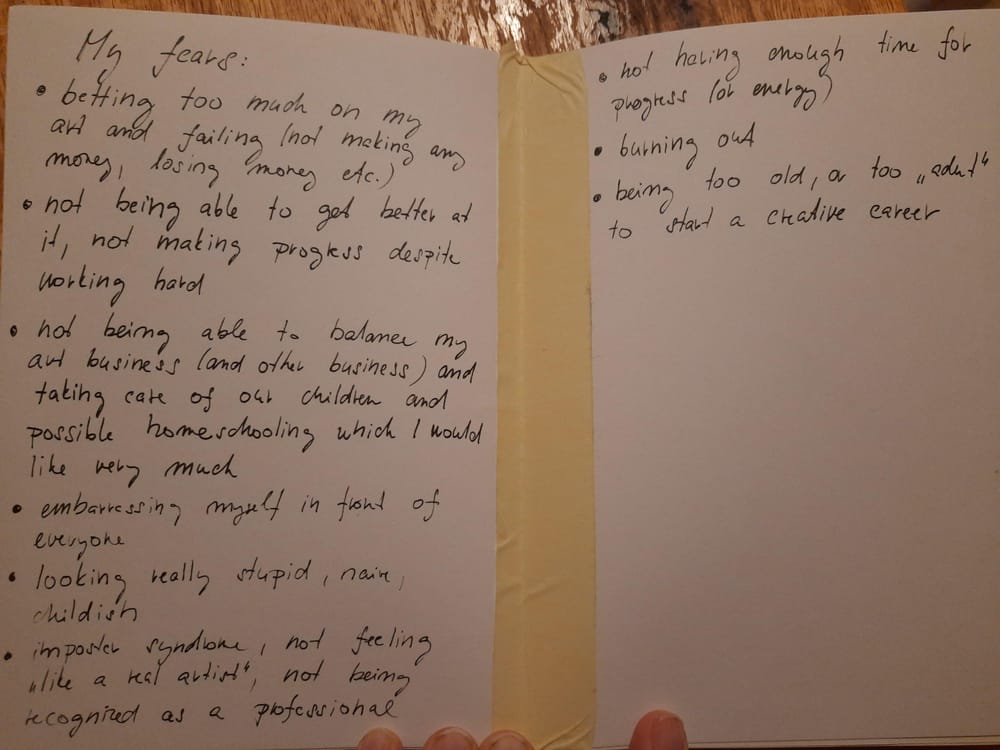 My fears:
• betting too much on my
art and failing (not making any
money, losing money etc.)
• not being able to get better at
it, not making progress despite
working hard
• not being able to balance my
art business (and other business) and
taking care of our children and
possible homeschooling which I would
like very much
• embarrassing myself in front of
everyone
• looking really stupid, naive,
childish
• imposter syndrome, not feeling
„like a real artist“, not being
recognized as a professional
• not having enough time for
progress (or energy)
• burning out
• being too old, or too „adult“
to start a creative career